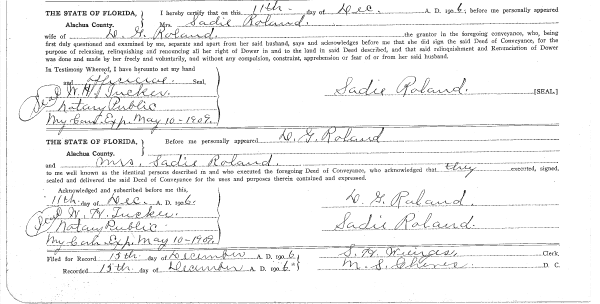 THE STATE OF FLORIDA, } I hereby certify that on this 11th day of Dec. A. D. 1906, before me personally appeared
Alachua County. Mrs. Sadie Roland.
wife of D. G. Roland. the grantor in the foregoing conveyance, who, being
first duly questioned and examined by me, separate and apart from her said husband, says and acknowledges before me that she did sign the said Deed of Conveyance, for the
purpose of releasing, relinquishing and renouncing all her right of Dower in and to the land in said Deed described, and that said relinquishment and Renunciation of Dower
was done and made by her freely and voluntarily, and without any compulsion, constraint, apprehension or fear of or from her said husband.
In Testimony Whereof, I have hereunto set my hand
and official Seal.
Seal W. H. Tucker. Sadie Roland. [SEAL.]
Notary Public
My Com. Exp. May 10-1909.
THE STATE OF FLORIDA, } Before me personally appeared D. G. Roland
Alachua County.
and Mrs. Sadie Roland.
to me well known as the identical persons described in and who executed the foregoing Deed of Conveyance, who acknowledged that they executed, signed,
sealed and delivered the said Deed of Conveyance for the uses and purposes therein contained and expressed.
Acknowledged and subscribed before me this,
11th day of Dec. A. D. 1906. D. G. Roland
Seal W. H. Tucker. Sadie Roland.
Notary Public.
My Com. Exp. May 10-1909.
Filed for Record 15th day of December A. D. 1906 S. H. Wienges, Clerk,
Recorded 15th. day of December A. D. 1906 M. S. D. C.